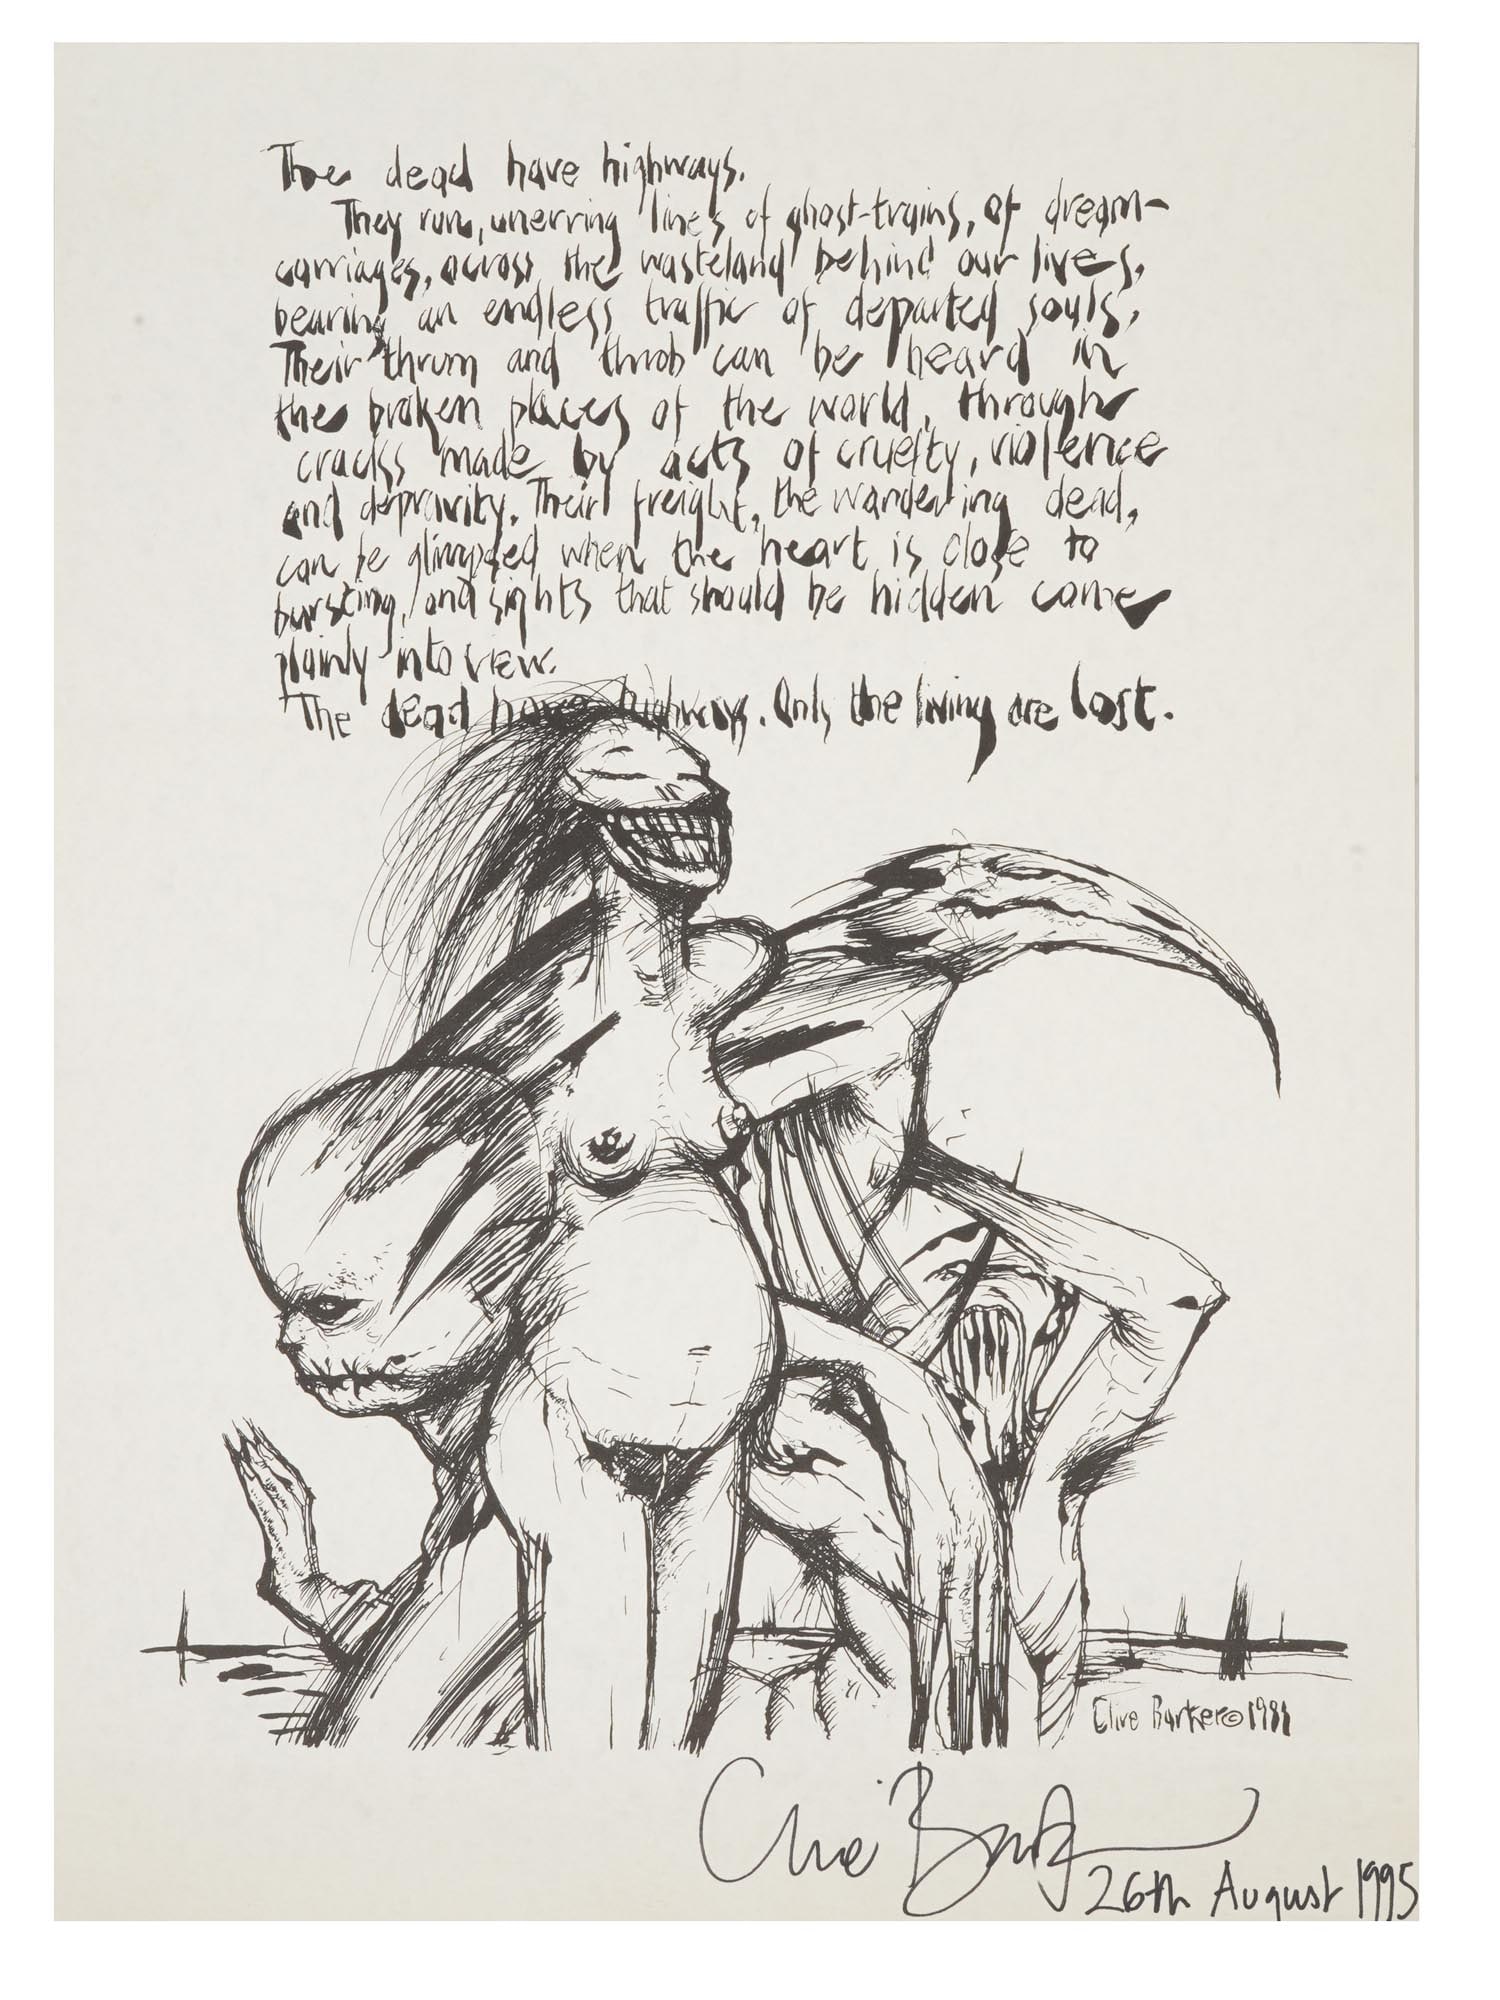 The dead have highways.
They run, unerring lines of ghost-trains, of dream-
carriages, across the wasteland behind our lives,
bearing an endless traffic of departed souls,
Their thrum and throb can be heard in
the broken places of the world, through
cracks made by acts of cruelty, violence
and depravity. Their freight, the wandering dead,
can be glimpsed when the heart is close to
bursting, and sights that should be hidden come
plainly into view.
The dead have highways. Only the living are lost.
Clive Barker©
Clive Barker
26th August 1995